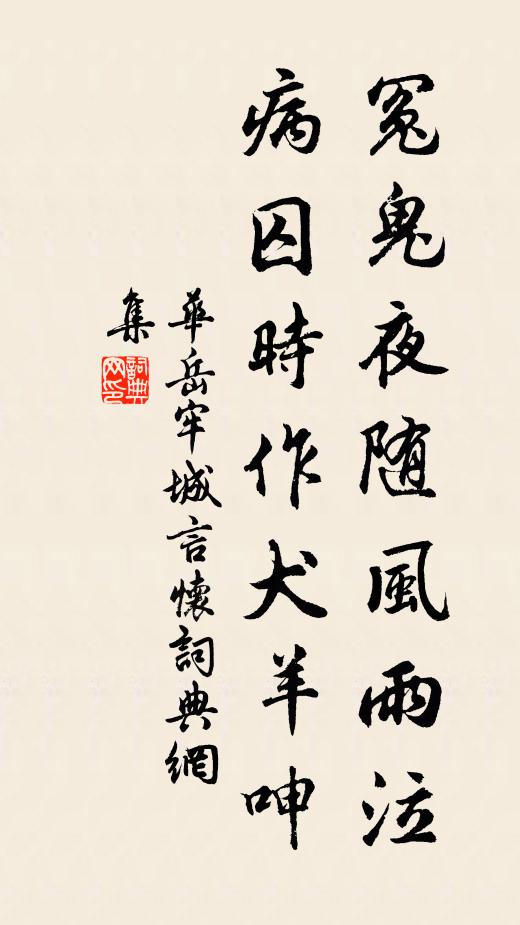 冤鬼夜随風雨泣
病囚時作犬羊呻
華岳牢城言懷詞典網
集
詞典网印